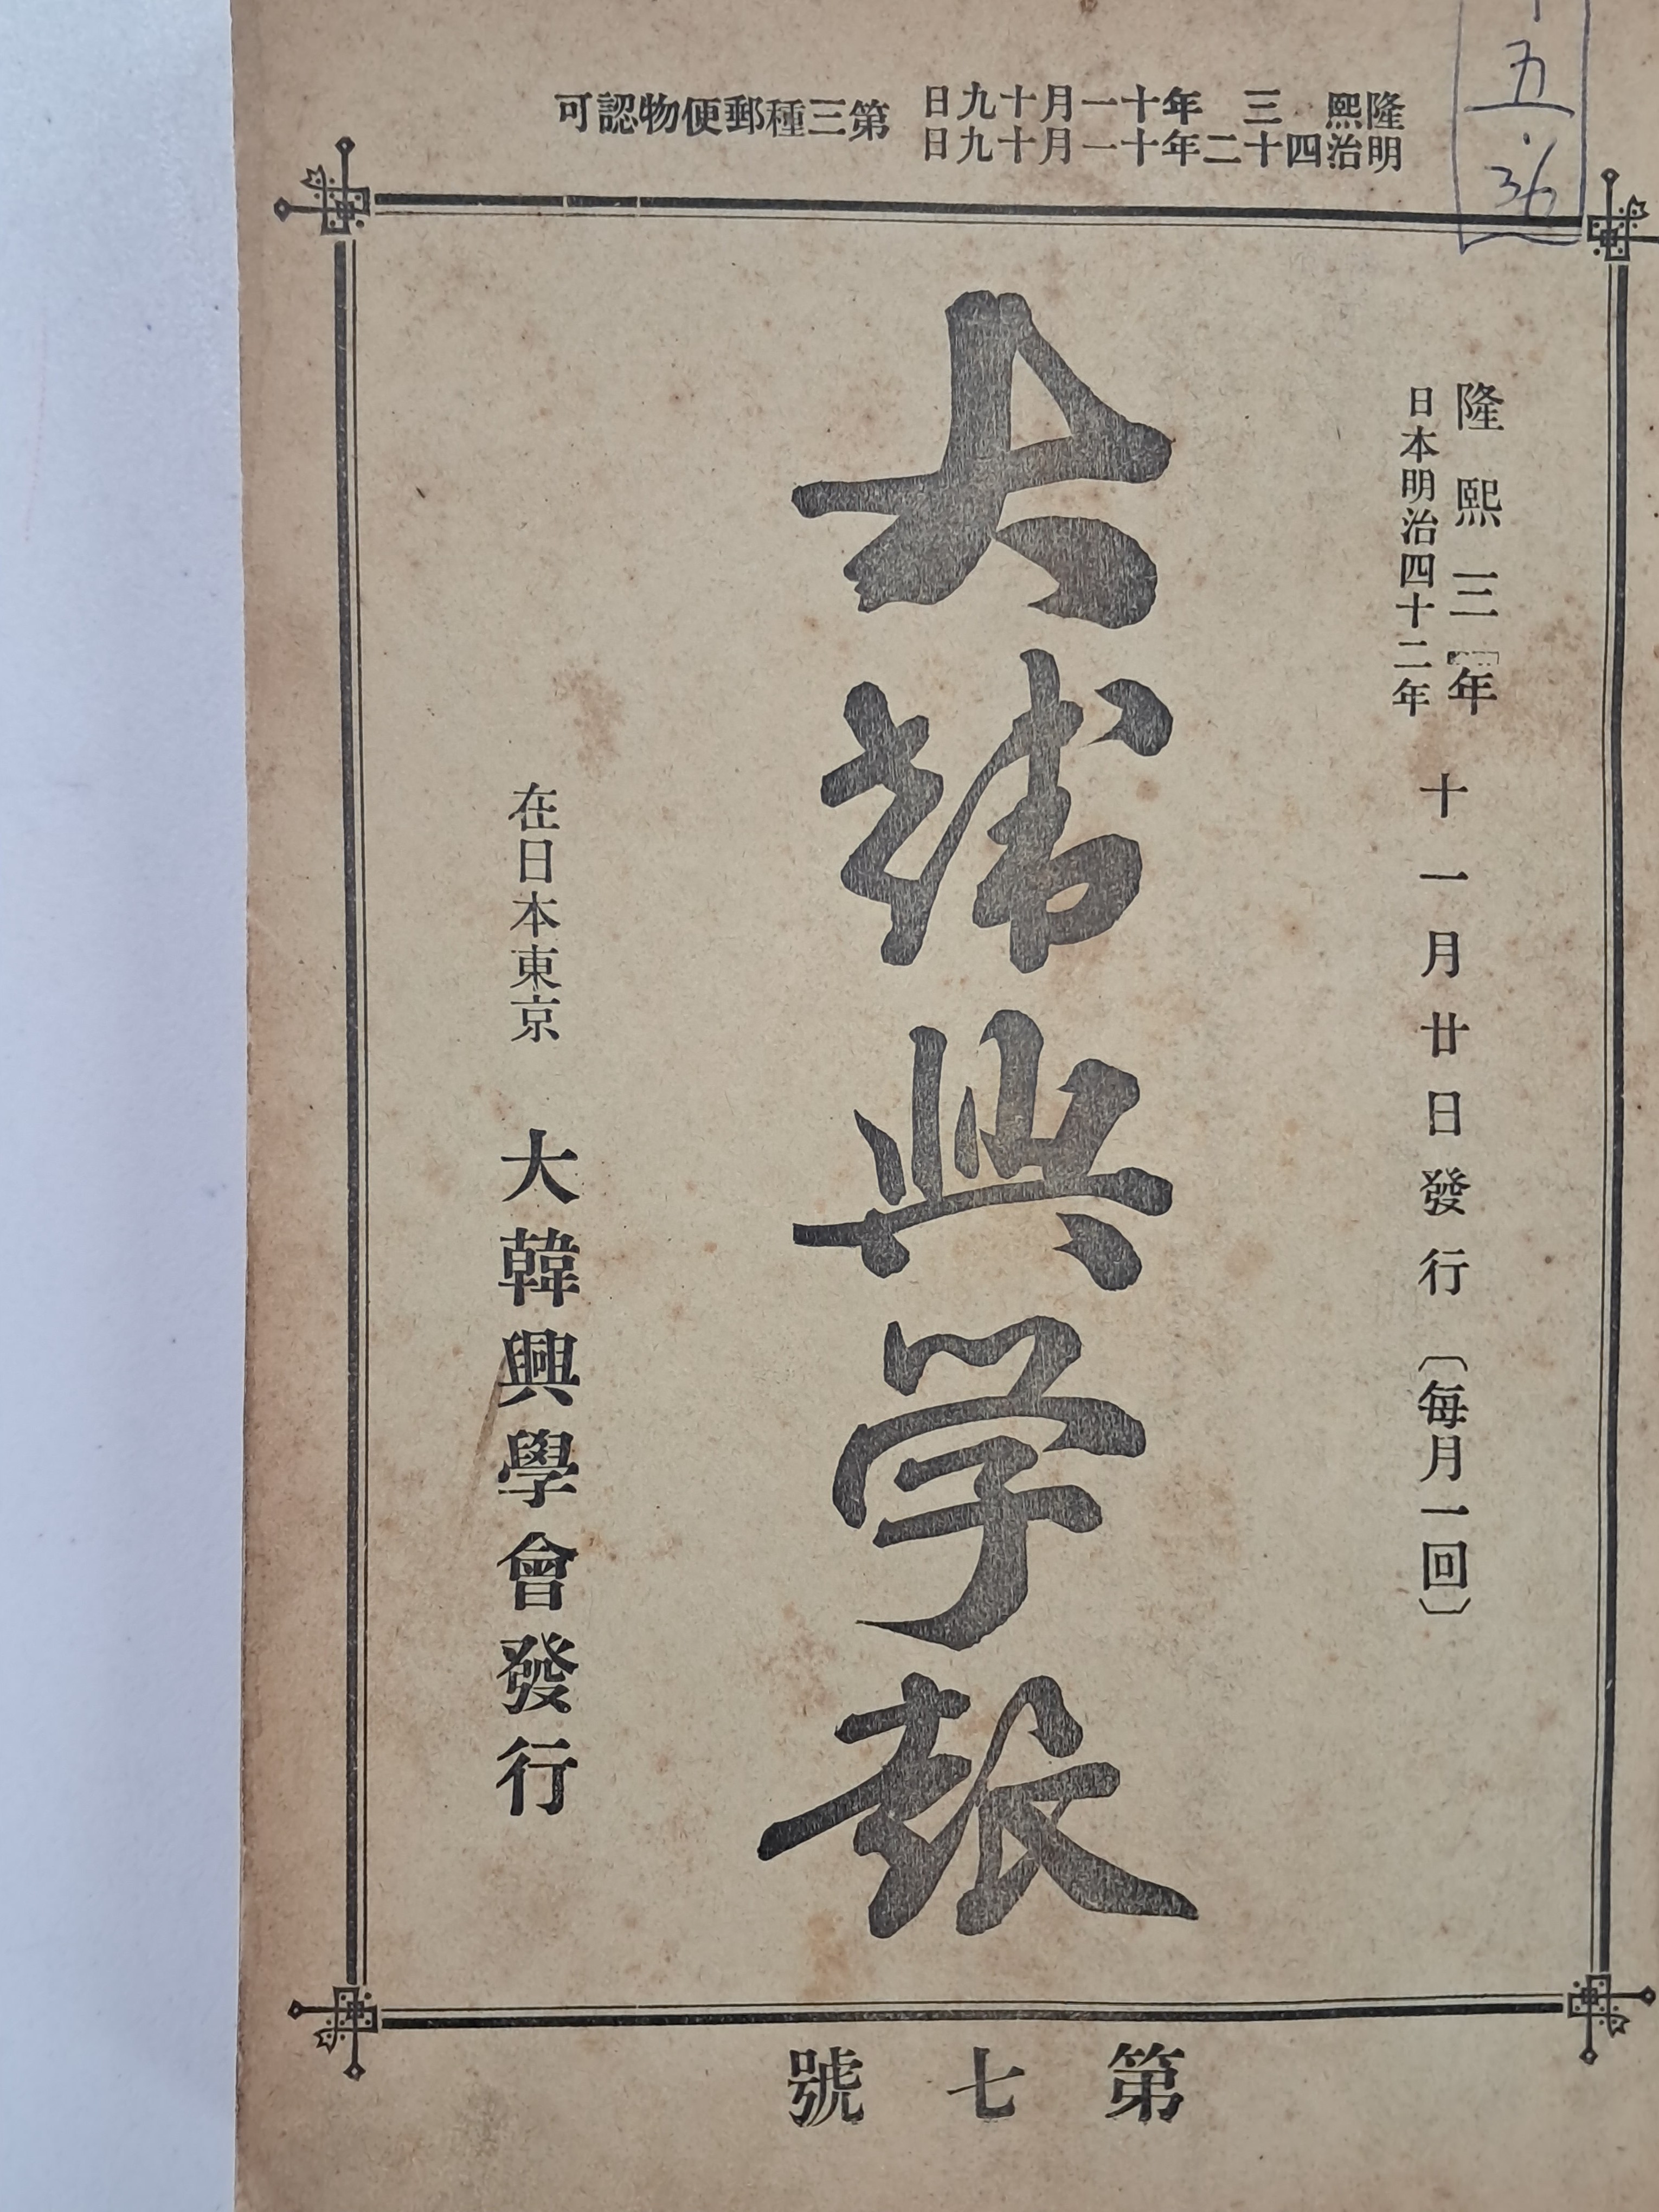 隆熙三年十一月十九日
明治四十二年十一月十九日
第三種郵便物認可
五
36
隆熙三年
日本明治四十二年
十一月廿日發行〔每月一回〕
大韓興学報
在日本東京 大韓興學會發行
第七號